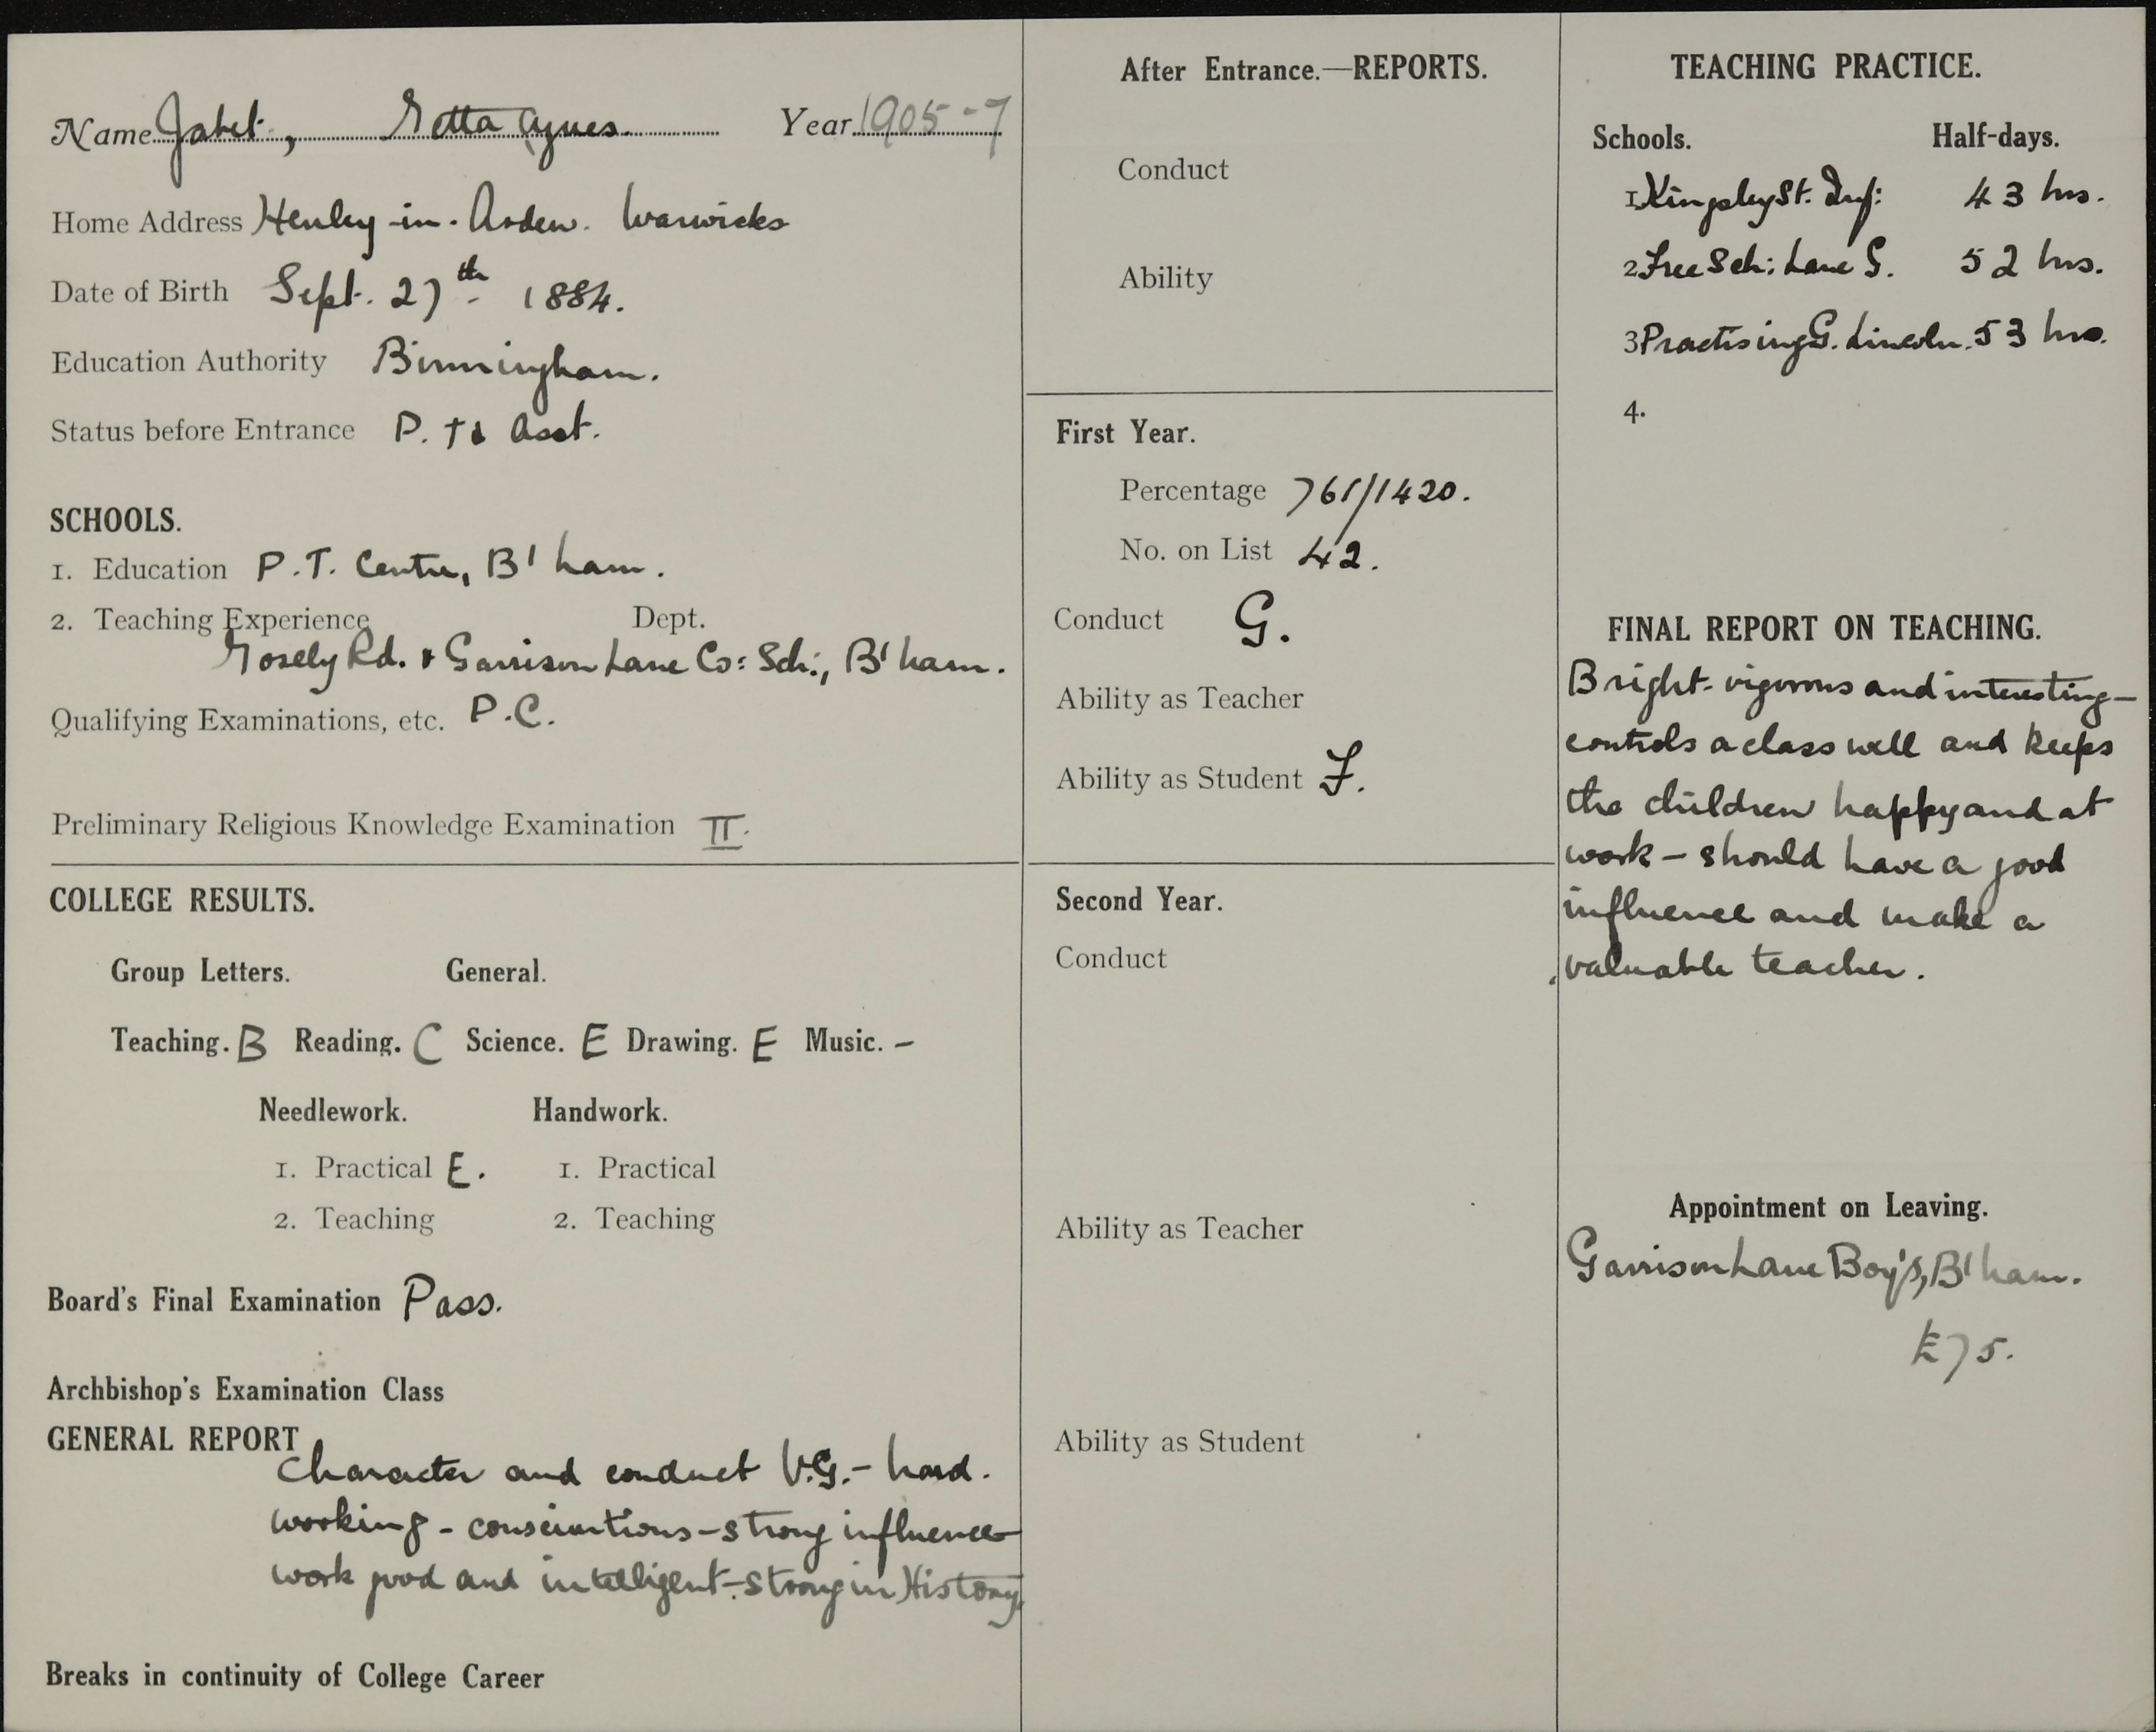 Name Jabet, Etta Agnes. Year 1905-7
Home Address Henley-in-Arden. Warwicks
Date of Birth Sept. 27th 1884.
Education Authority Birmingham.
Status before Entrance P.T & Asst.
SCHOOLS.
1. Education P.T. Centre, B'ham.
2. Teaching Experience Dept.
Mosely Rd. & Garrison Lane Co: Sch:, B'ham.
Qualifying Examinations, etc. P.C.
Preliminary Religious Knowledge Examination II.
COLLEGE RESULTS.
Group Letters. General.
Teaching. B Reading. C Science. E Drawing. E Music. –
Needlework. Handwork.
1. Practical E. 1. Practical
2. Teaching 2. Teaching
Board's Final Examination Pass.
Archbishop's Examination Class
GENERAL REPORT
Character and conduct V.G. – hard-
working – conscientious – strong influence
work good and intelligent – strong in History.
Breaks in continuity of College Career
After Entrance.—REPORTS.
Conduct
Ability
First Year.
Percentage 761/1420.
No. on List 42.
Conduct G.
Ability as Teacher
Ability as Student F.
Second Year.
Conduct
Ability as Teacher
Ability as Student
TEACHING PRACTICE.
Schools. Half-days.
1 Kingsley St. Inf: 43 hrs.
2 Free Sch: Lane G. 52 hrs.
3 Practising G. Lincoln. 53 hrs.
4.
FINAL REPORT ON TEACHING.
Bright – vigorous and interesting –
controls a class well and keeps
the children happy and at
work – should have a good
influence and make a
valuable teacher.
Appointment on Leaving.
Garrison Lane Boy's, B'ham.
£75.